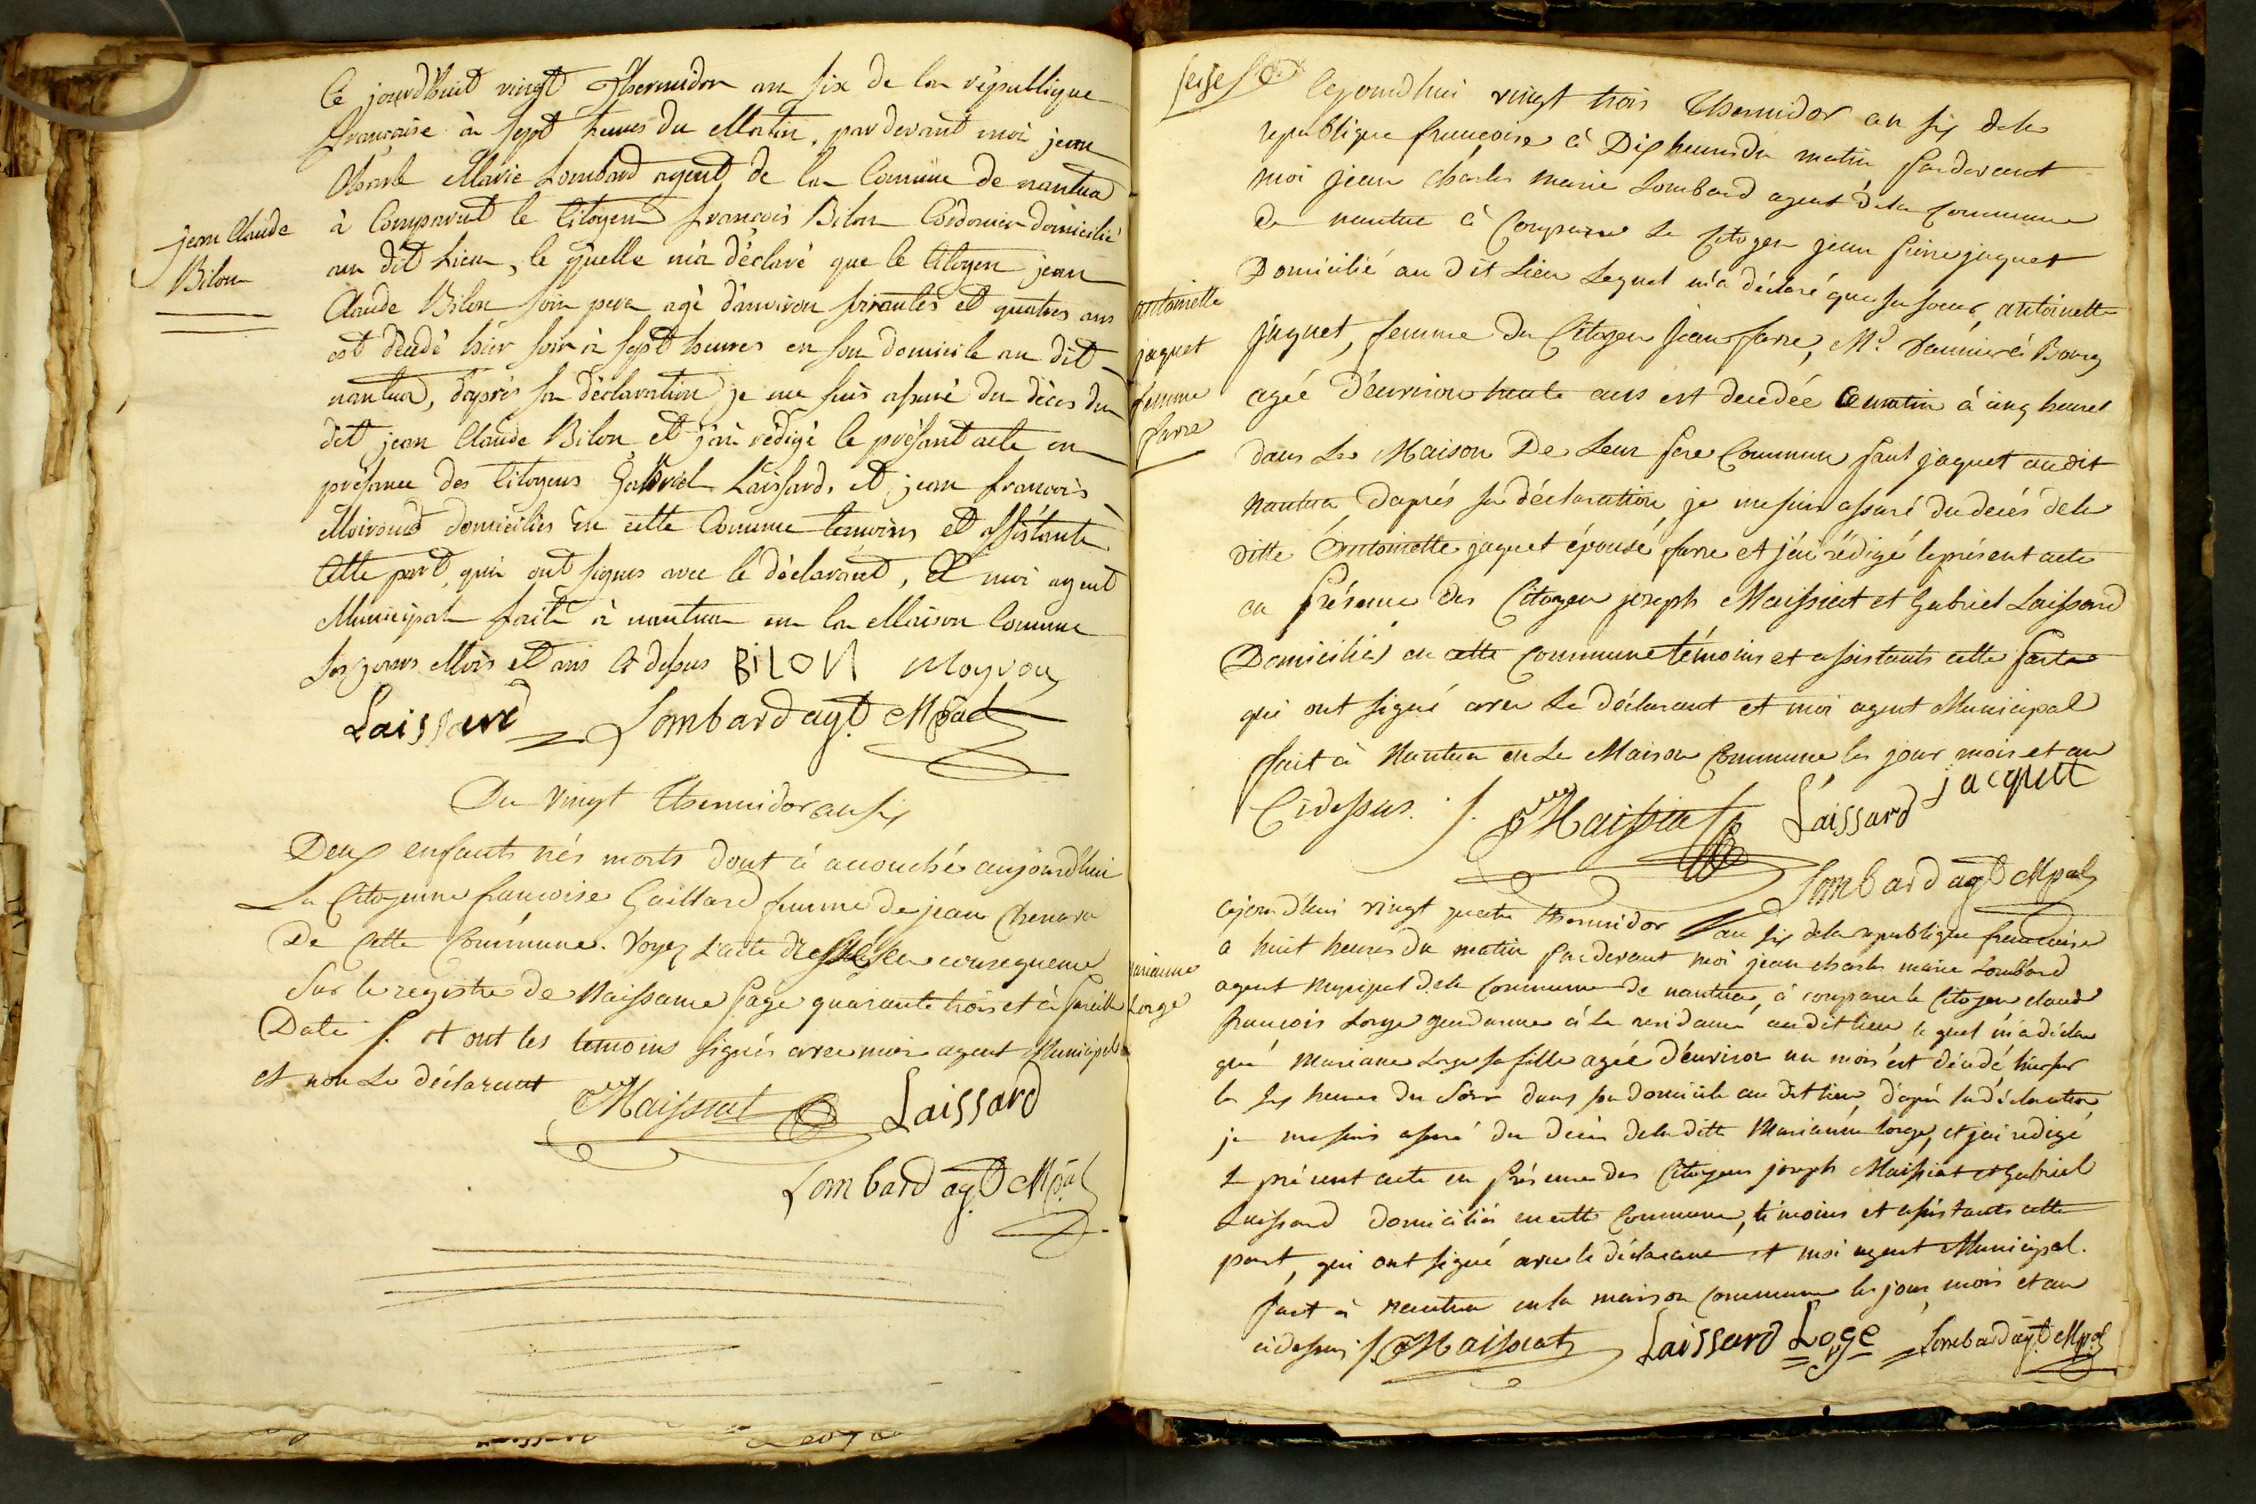 Ce jourd'huit vingt Thermidor an six de la république
française à sept heures du Matin, pardevant moi jean
Charle Marie Lombard agent de la Comune de nantua
à Comparut le Citoyen françois Bilon Cordonier domicilié
au dit Lieu, le quelle m'a déclaré que le Citoyen jean
Claude Bilon son pere agé d'anviron soixantes et quatres ans
est décédé hier soir à sept heures en son domicile au dit
nantua, d'après sa déclaration je me suis assuré du décès du
dit jean Claude Bilon et j'ai rédigé le présant acte en
présance des Citoyens Gabriel Laissard, et jean françois
Moiroud domiciliés en cette Comune temoins et assistants
Cette part, qui ont signes avec le déclarant, et moi agent
Municipal fait à nantua en la Maison Comune
les jours Mois et ans Ci dessus BILON Moyrou
Laissard Lombard agt Mpal
jean Claude
Bilon
Du vingt thermidor an six
Deux enfants nés morts dont à accouché aujourd'hui
La Citoyenne francoise Gaillard femme de jean Chenava
De Cette Commune. Voyez L'acte dressé en consequence
Sur le registre de Naissance page quarante trois et à pareille
Date /. et ont les temoins signés avec moi agent Municipal
et non Le déclarant
Maissiat Laissard
Lombard agt Mpal
seize
Cejourdhui vingt trois thermidor an six dela
republique françoise à Dix heures du matin pardevant
moi jean charles marie Lombard agent dela commune
de nantua à Comparu Le Citoyen jean pierre jaquet
Domicilié au dit Lieu Lequel m'a déclaré que sa soeur, antoinette
jaquet, femme du Citoyen jean farre, Md à Bourg
agée d'environ trente ans est decedée ce matin à cinq heures
dans La Maison De Leur pere Commun paul jaquet audit
Nantua D'aprés sa déclaration je me suis assuré du decés dela
ditte Antoinette jaquet épouse farre et j'ai rédigé le présent acte
en présence des Citoyen joseph Maissiat et Gabriel Laissard
Domiciliés en cette commune témoins et assistants cette parte
qui ont signé avec Le déclarant et moi agent Municipal
fait à Nantua en La Maison Commune les jour mois et an
Cidessus. /. Maissiat Laissard jacquet
Lombard agt Mpal
antoinette
jaquet
femme
farre
Cejourd'hui vingt quatre thermidor an six dela republique francaise
a huit heures du matin pardevant moi jean charles marie Lombard
agent municipal dela commune de nantua, à comparu le Citoyen claude
françois Lorge gendarme à la residance audit lieu le quel m'a déclaré
que Mariane Lorge sa fille agée d'environ un mois est décédé hier sur
les six heures du Soir dans son domicile au dit lieu, d'après sa déclaration
je me suis assuré du decès dela ditte Marianne Lorge, et j'ai redigé
Le présent acte en présence des Citoyens joseph Maissiat et Gabriel
Laissard domiciliés en cette Commune, témoins et assistants cette
part, qui ont signé avec le déclarant et moi agent Municipal.
fait à nantua en la maison commune les jour mois et an
cidessus /. Maissiat Laissard Loge Lombard agt Mpal
marianne
Lorge